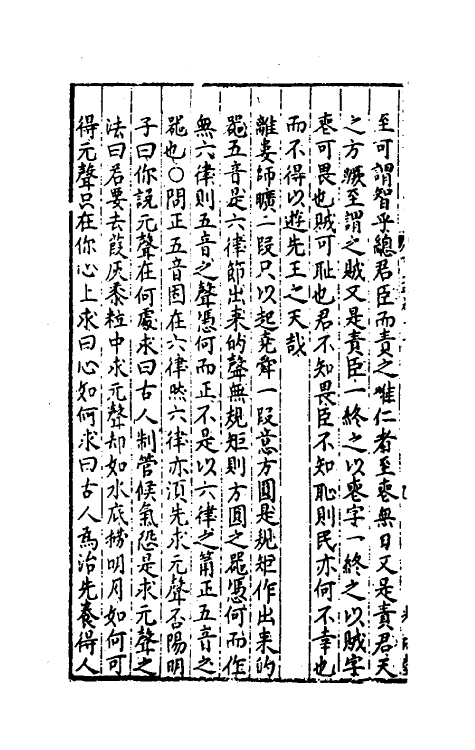 至可謂智乎總君臣而責之唯仁者至喪無日又是責君天
之方蹶至謂之賊又是責臣一終之以喪字一終之以賊字
喪可畏也賊可耻也君不知畏臣不知恥則民亦何不幸也
而不得以遊先王之天哉
離婁師曠二段只以起堯舜一段意方圓是規矩作出来的
器五音是六律節出来的聲無規矩則方圓之器憑何而作
無六律則五音之聲憑何而正不是以六律之箭正五音之
器也〇問正五音固在六律然六律亦須先求元聲否陽明
子曰你説元聲在何處求曰古人制管候氣恐是求元聲之
法曰若要去葭灰黍粒中求元聲却如水底撈明月如何可
得元聲只在你心上求曰心如何求曰古人爲治先養得人